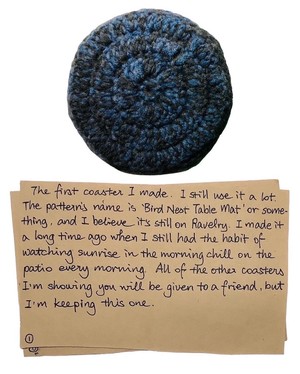 The first coaster I made. I still use it a lot.
The pattern's name is 'Bird Nest Table Mat' or some-
thing, and I believe it's still on Ravelry. I made it
a long time ago when I still had the habit of
watching sunrise in the morning chill on the
patio every morning. All of the other coasters
I'm showing you will be given to a friend, but
I'm keeping this one.
1